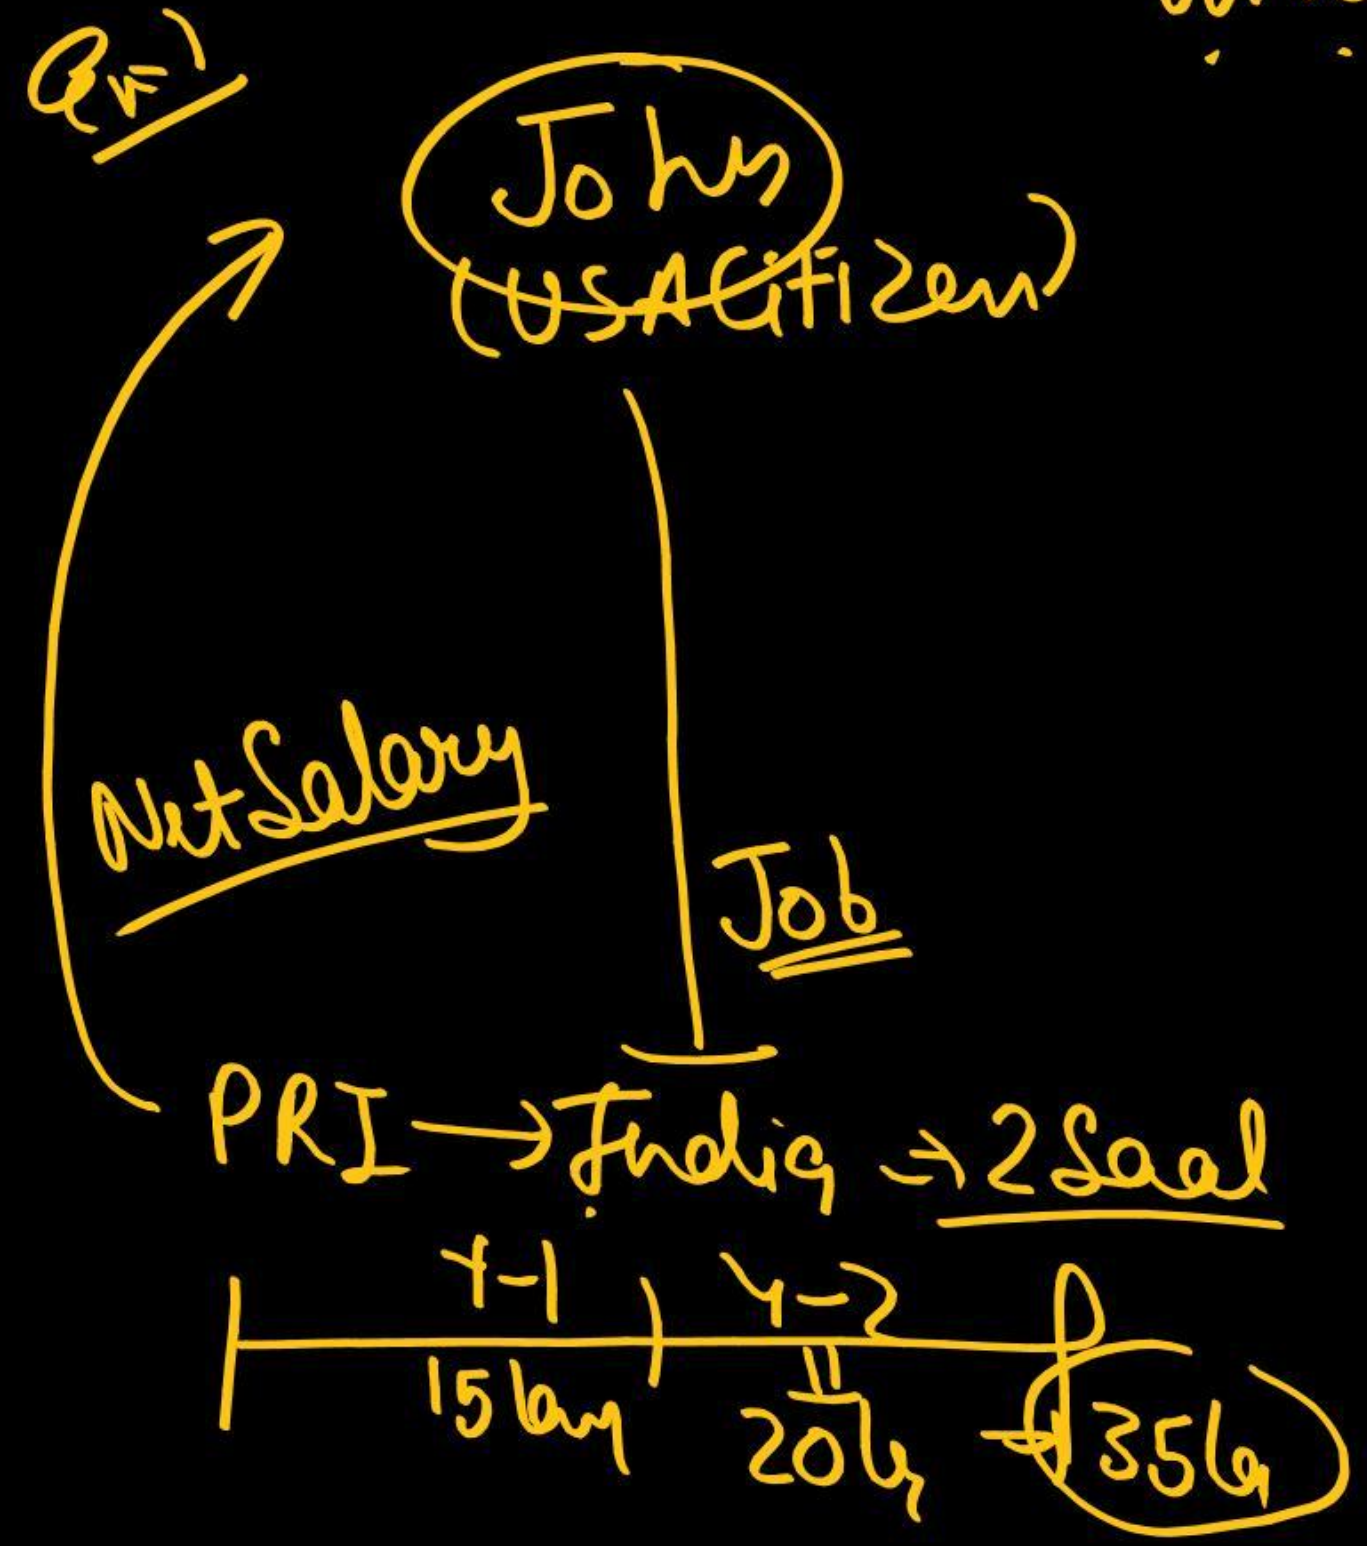 John
(USA Citizen)
Net Salary
Job
PRI → India → 2 Saal
Y-1 Y-2
15 20 35